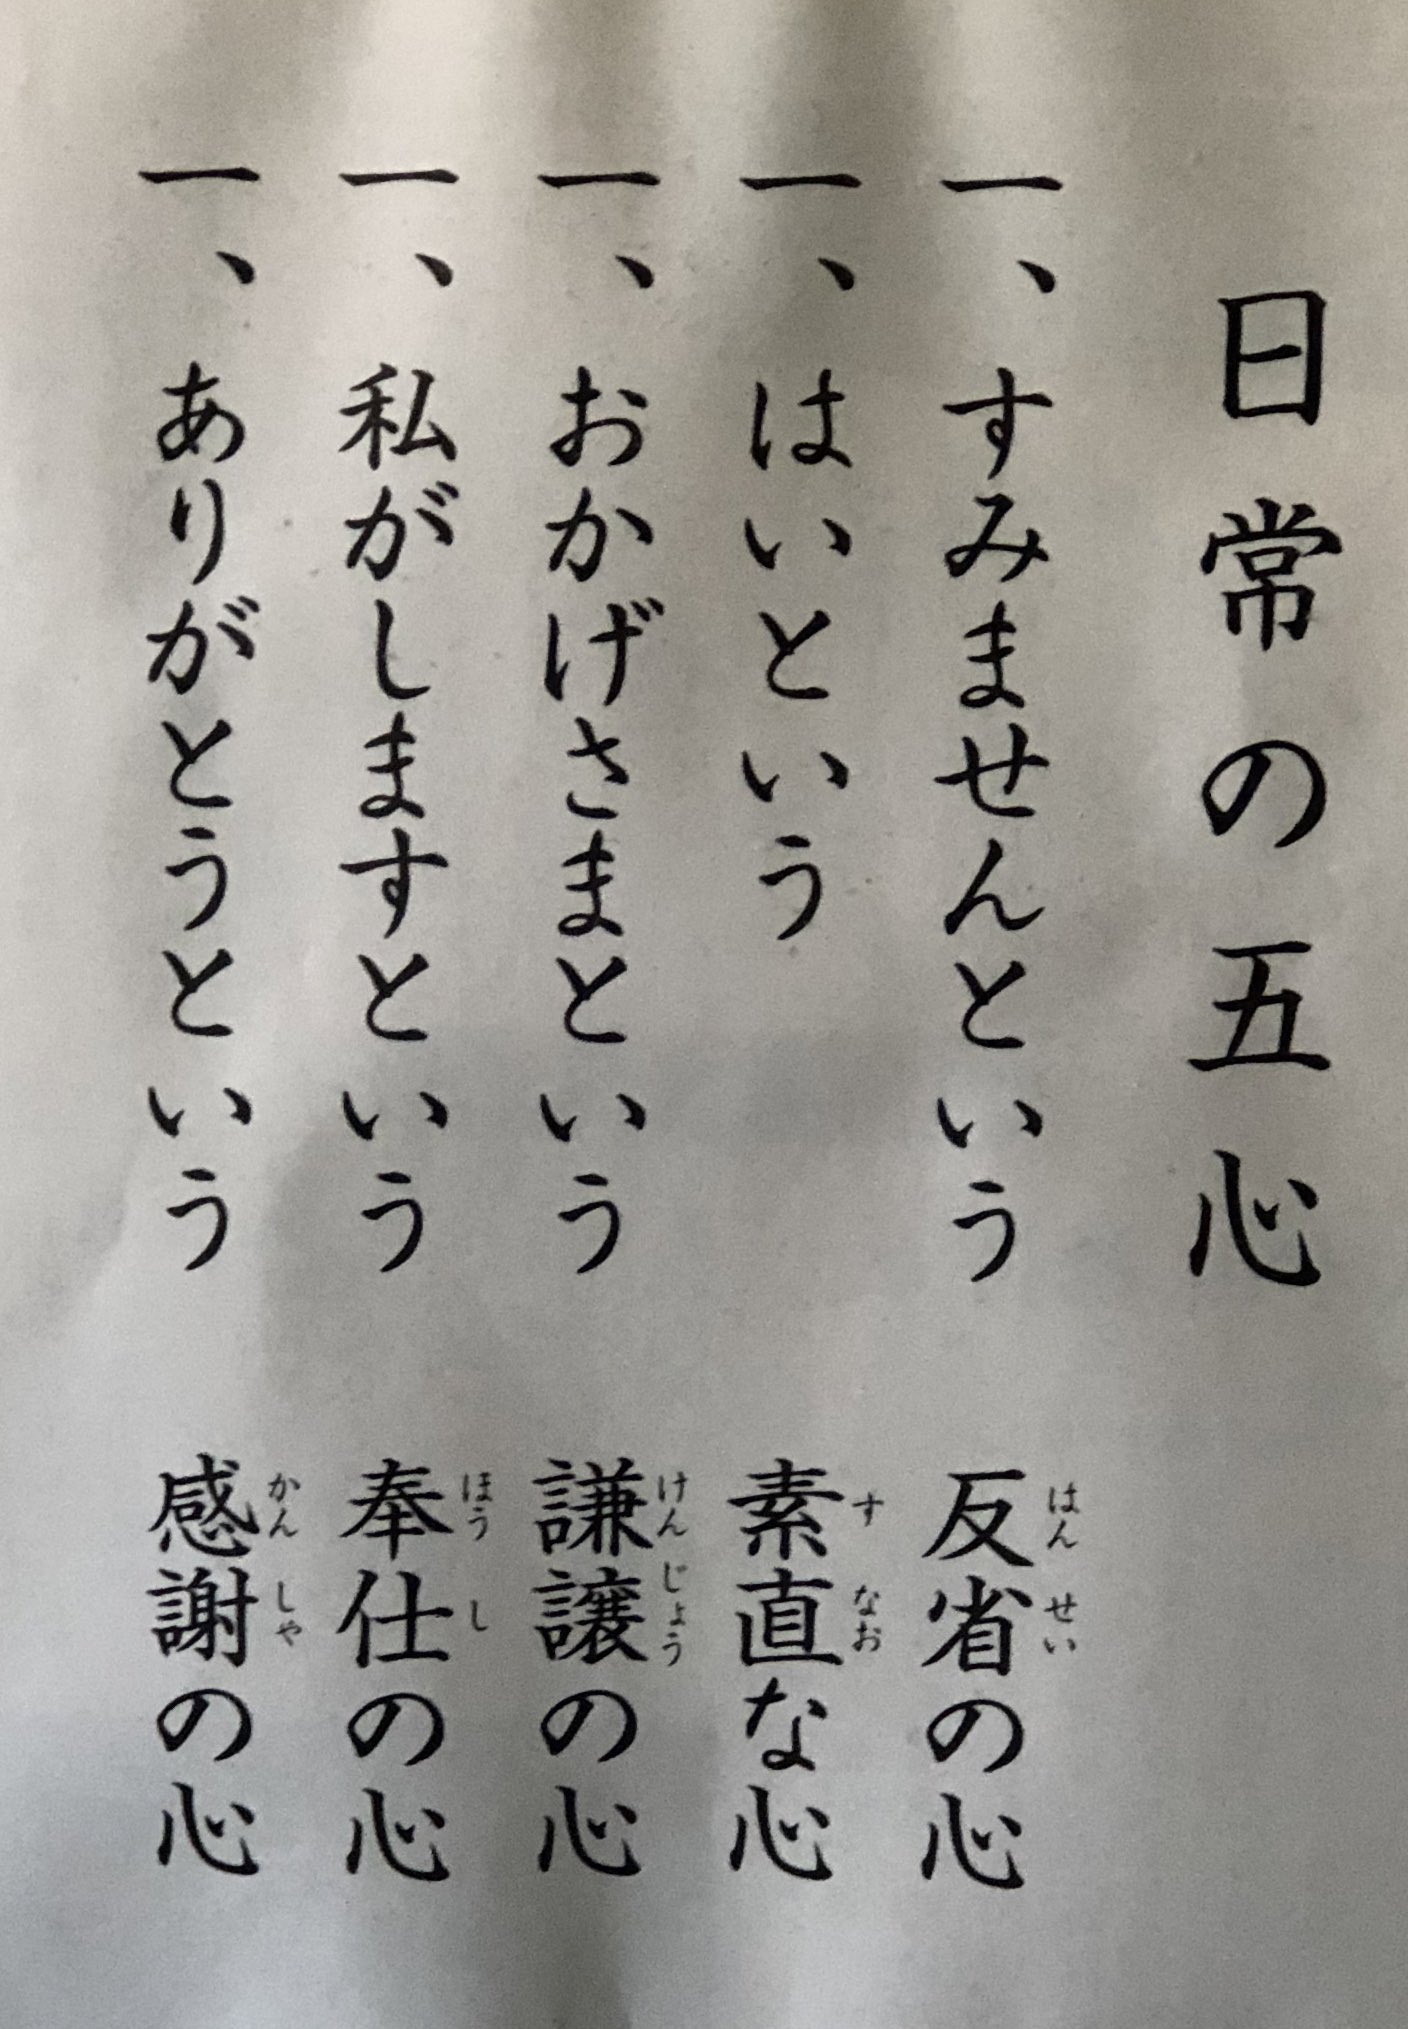 日常の五心
一、すみませんという 反省の心
はんせい
一、はいという 素直な心
すなお
一、おかげさまという 謙譲の心
けんじょう
一、私がしますという 奉仕の心
ほうし
一、ありがとうという 感謝の心
かんしゃ